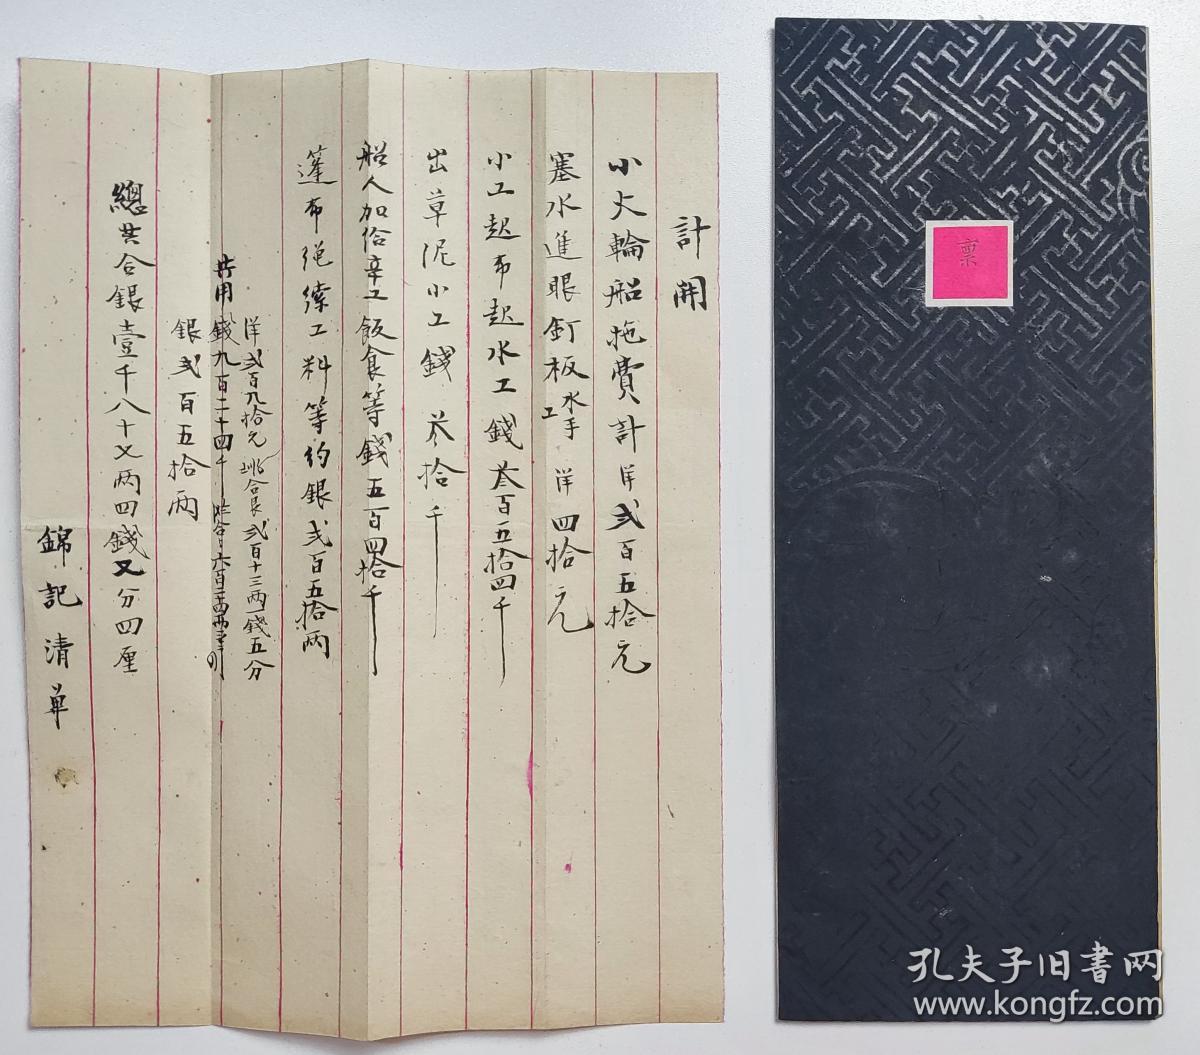 計開
小火輪船拖費計洋弍百五拾元
塞水進眼釘板水手工洋四拾元
小工起布起水工錢叁百五拾四千
出草泥小工錢叁拾千
船人加給辛工飯食等錢五百四拾千
篷布繩索工料等約銀弍百五拾兩
共用
洋弍百九拾元 合艮弍百十三兩一錢五分
錢九百二十四千 合 六百
銀弍百五拾兩
總共合銀壹千八十七兩四錢又分四厘
錦記清單
禀
孔夫子旧書网
www.kongfz.com